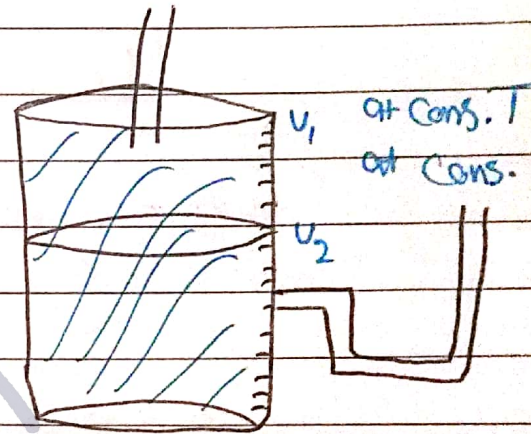 V₁ at Cons. T
at Cons.
V₂